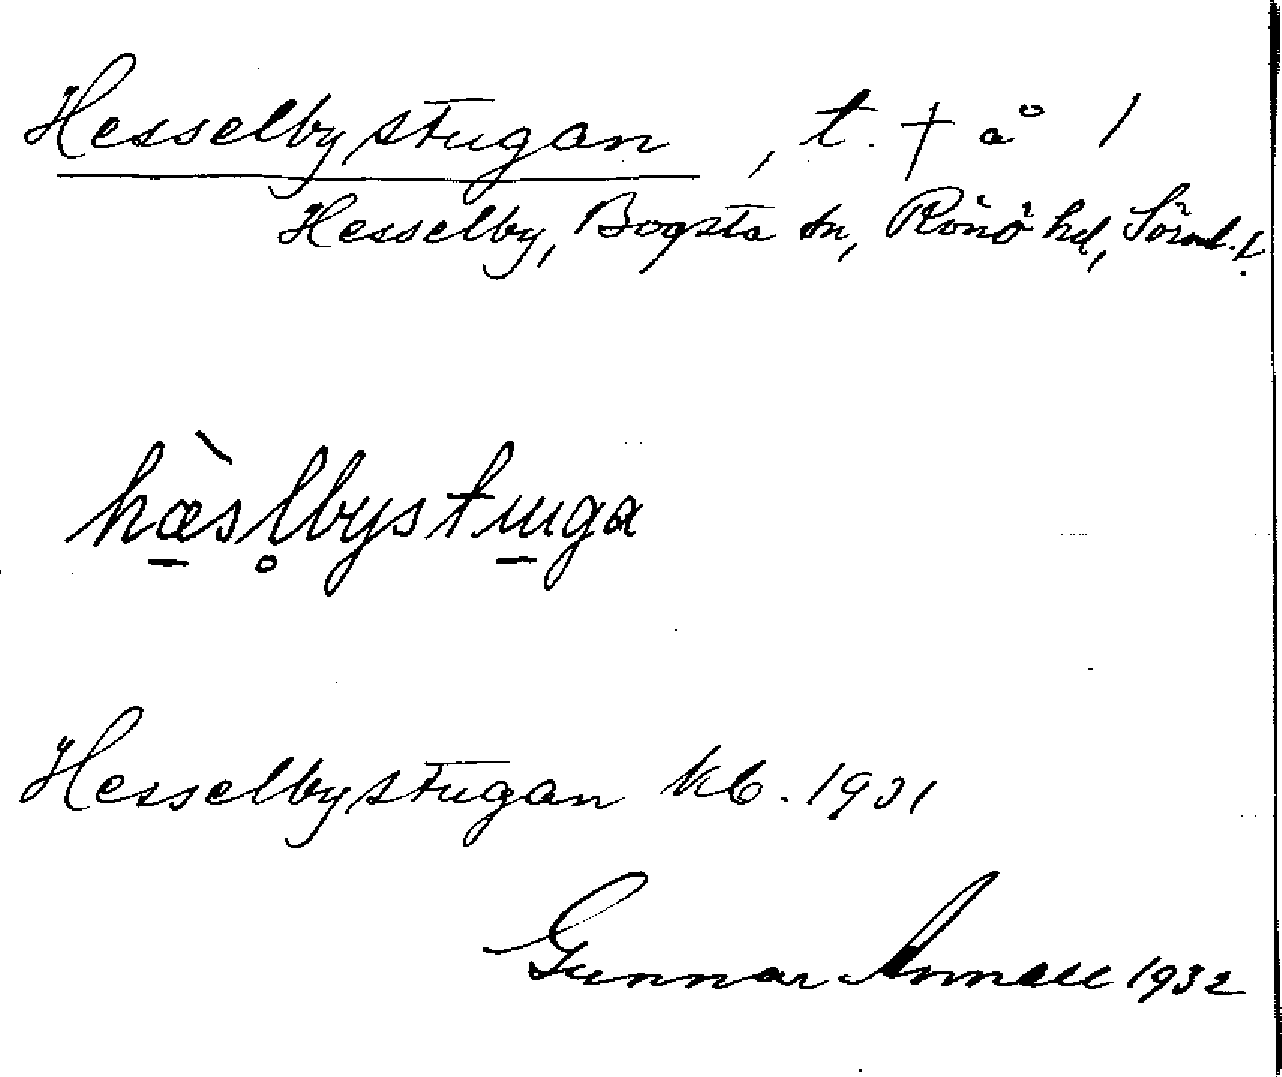 Hesselbystugan, t. † å /
Hesselby, Bogsta sn, Rönö hd, Söml. l.
hæ̀sl̥bystuga
Hesselbystugan kb. 1931
Gunnar Annell 1932